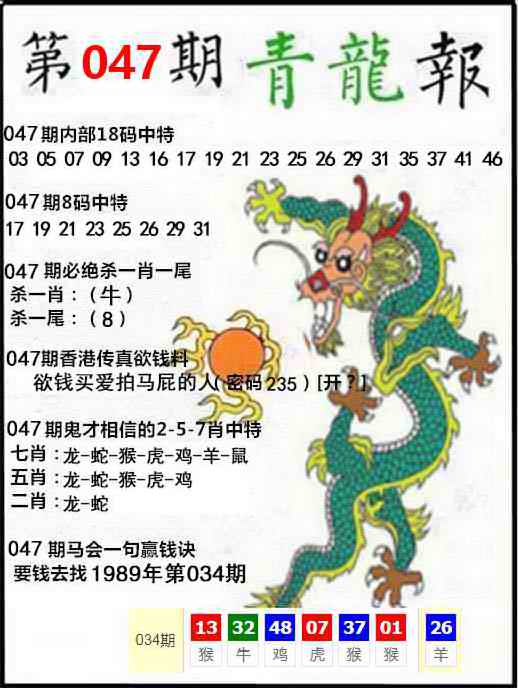 第047期青龍報
047期内部18码中特
03 05 07 09 13 16 17 19 21 23 25 26 29 31 35 37 41 46
047期8码中特
17 19 21 23 25 26 29 31
047 期必绝杀一肖一尾
杀一肖：（牛）
杀一尾：（8）
047期香港传真欲钱料
欲钱买爱拍马屁的人（密码235）[开？]
047期鬼才相信的2-5-7肖中特
七肖：龙-蛇-猴-虎-鸡-羊-鼠
五肖：龙-蛇-猴-虎-鸡
二肖：龙-蛇
047 期马会一句赢钱诀
要钱去找1989年第034期
034期 13 32 48 07 37 01 26
猴 牛 鸡 虎 猴 猴 羊